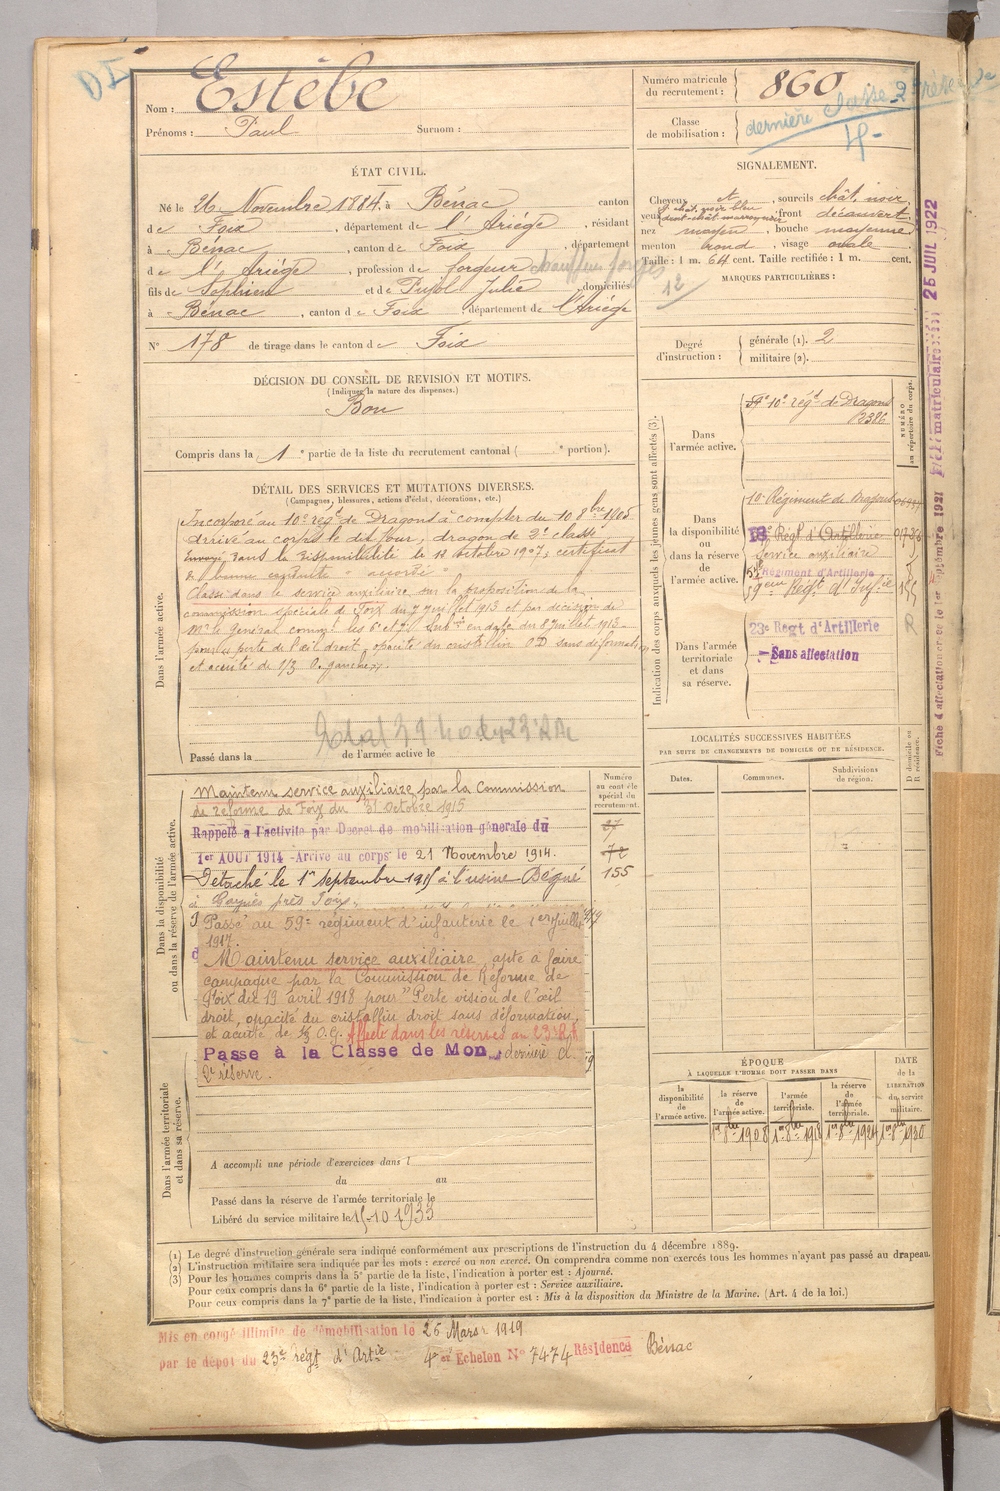 DI
Nom : Estèbe
Prénoms : Paul Surnom :
Numéro matricule du recrutement : 860
Classe de mobilisation :
dernière classe 2e réserve
ÉTAT CIVIL.
Né le 26 Novembre 1884, à Bénac canton
de Foix, département de l'Ariège, résidant
à Bénac, canton de Foix, département
de l'Ariège, profession de forgeur chauffeur forges
fils de et de Pujol Julie, domiciliés
à Bénac, canton de Foix, département de l'Ariège
N° 178 de tirage dans le canton de Foix
SIGNALEMENT.
Cheveux et, sourcils chât. noir
yeux, front découvert
nez moyen, bouche moyenne
menton rond, visage ovale
Taille : 1 m. 64 cent. Taille rectifiée : 1 m. cent.
MARQUES PARTICULIÈRES :
12
Degré d'instruction :
générale (1). 2
militaire (2).
DÉCISION DU CONSEIL DE REVISION ET MOTIFS.
(Indiquer la nature des dispenses.)
Bon
Compris dans la 1e partie de la liste du recrutement cantonal ( e portion).
DÉTAIL DES SERVICES ET MUTATIONS DIVERSES.
(Campagnes, blessures, actions d'éclat, décorations, etc.)
Dans l'armée active.
Incorporé au 10e régt de Dragons à compter du 10 8bre 1905
arrivé au corps le dit jour, dragon de 2e classe
Envoyé dans la disponibilité le 12 octobre 1907, certificat
de bonne conduite "accordé"
Classé dans le service auxiliaire sur la proposition de la
commission spéciale de Foix du 7 juillet 1913 et par décision de
Mr le Général commt les 6e et 7e Subons en date du 8 Juillet 1913
pour perte de l'œil droit, opacité du cristallin O.D sans déformation
et acuité de 1/3 O. gauche.
Passé dans la de l'armée active le
Dans la disponibilité ou dans la réserve de l'armée active.
Maintenu service auxiliaire par la Commission
de réforme de Foix du 31 Octobre 1915
Rappelé à l'activité par Décret de mobilisation générale du
1er AOUT 1914 - Arrivé au corps le 21 Novembre 1914.
Détaché le 1er septembre 1915 à l'usine Bégué
à près Foix.
Passé au 59e régiment d'infanterie le 1er juillet
1917.
Maintenu service auxiliaire, apte à faire
campagne par la Commission de Réforme de
Foix du 19 avril 1918 pour "Perte vision de l'œil
droit, opacité du cristallin droit sans déformation,
et acuité de 1/3 O.G. Affecté dans les réserves au 23e R.A.
Passé à la Classe de Mon dernière cl.
2e réserve.
Numéro au contrôle spécial du recrutement.
27
72
155
Dans l'armée territoriale et dans sa réserve.
A accompli une période d'exercices dans l
du au
Passé dans la réserve de l'armée territoriale le
Libéré du service militaire le 15-10 1933
Indication des corps auxquels les jeunes gens sont affectés (3).
NUMÉRO au répertoire du corps.
Dans l'armée active.
10e régt de Dragons
2386
Dans la disponibilité ou dans la réserve de l'armée active.
10e Régiment de Dragons
18e Régt d'Artillerie
Service auxiliaire
Régiment d'Artillerie
59eme Régt d'Infie
155
Dans l'armée territoriale et dans sa réserve.
23e Régt d'Artillerie
R
Sans affectation
LOCALITÉS SUCCESSIVES HABITÉES
PAR SUITE DE CHANGEMENTS DE DOMICILE OU DE RÉSIDENCE.
Dates. Communes. Subdivisions de région. D domicile ou R résidence.
ÉPOQUE
À LAQUELLE L'HOMME DOIT PASSER DANS
la disponibilité de l'armée active. la réserve de l'armée active. l'armée territoriale. la réserve de l'armée territoriale. DATE de la LIBÉRATION du service militaire.
1er 8bre 1908 1er 8bre 1918 1er 8bre 1924 1er 8bre 1930
(1) Le degré d'instruction générale sera indiqué conformément aux prescriptions de l'instruction du 4 décembre 1889.
(2) L'instruction militaire sera indiquée par les mots : exercé ou non exercé. On comprendra comme non exercés tous les hommes n'ayant pas passé au drapeau.
(3) Pour les hommes compris dans la 5e partie de la liste, l'indication à porter est : Ajourné.
Pour ceux compris dans la 6e partie de la liste, l'indication à porter est : Service auxiliaire.
Pour ceux compris dans la 7e partie de la liste, l'indication à porter est : Mis à la disposition du Ministre de la Marine. (Art. 4 de la loi.)
Mis en congé illimité de démobilisation le 25 Mars 1919
par le dépôt du 23e régt d'Artie 4e Échelon N° 7474 Résidence Bénac
Fiche d'affectation créée le 1er septembre 1921
matriculaire 25 JUIL 1922